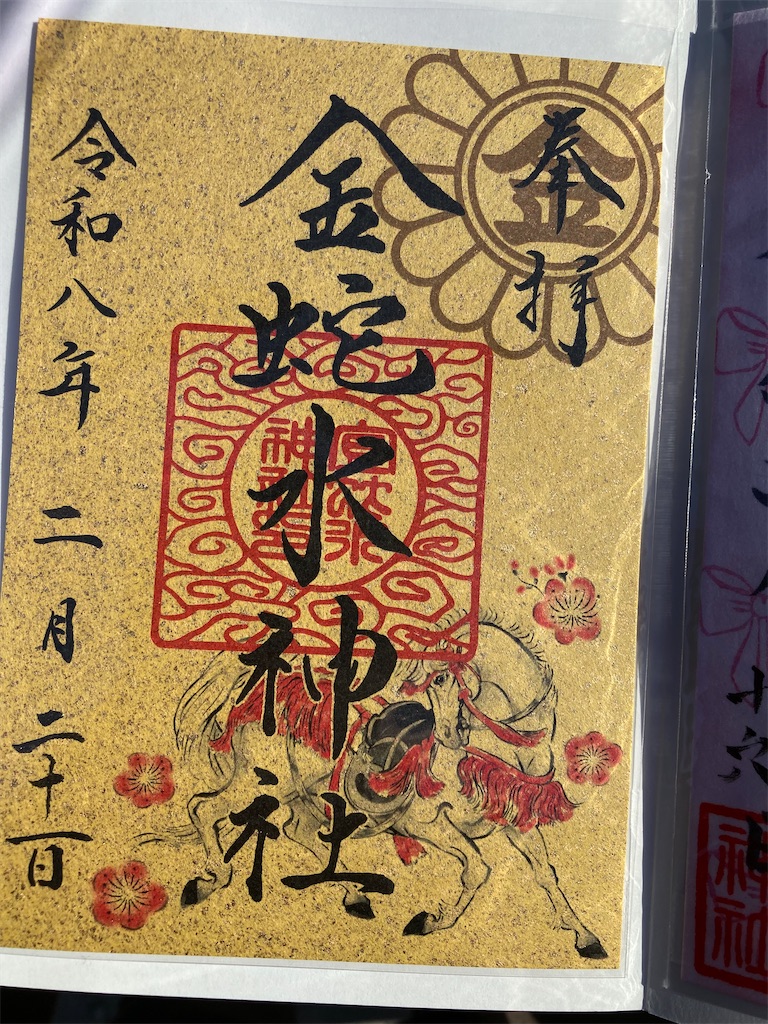 奉拝
金
金蛇水神社
令和八年 二月 二十一日
神社